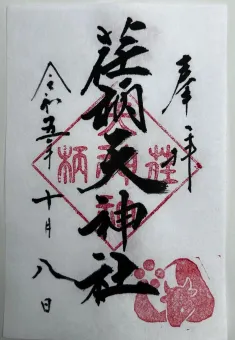 奉拝
荏柄天神社
令和五年十月八日